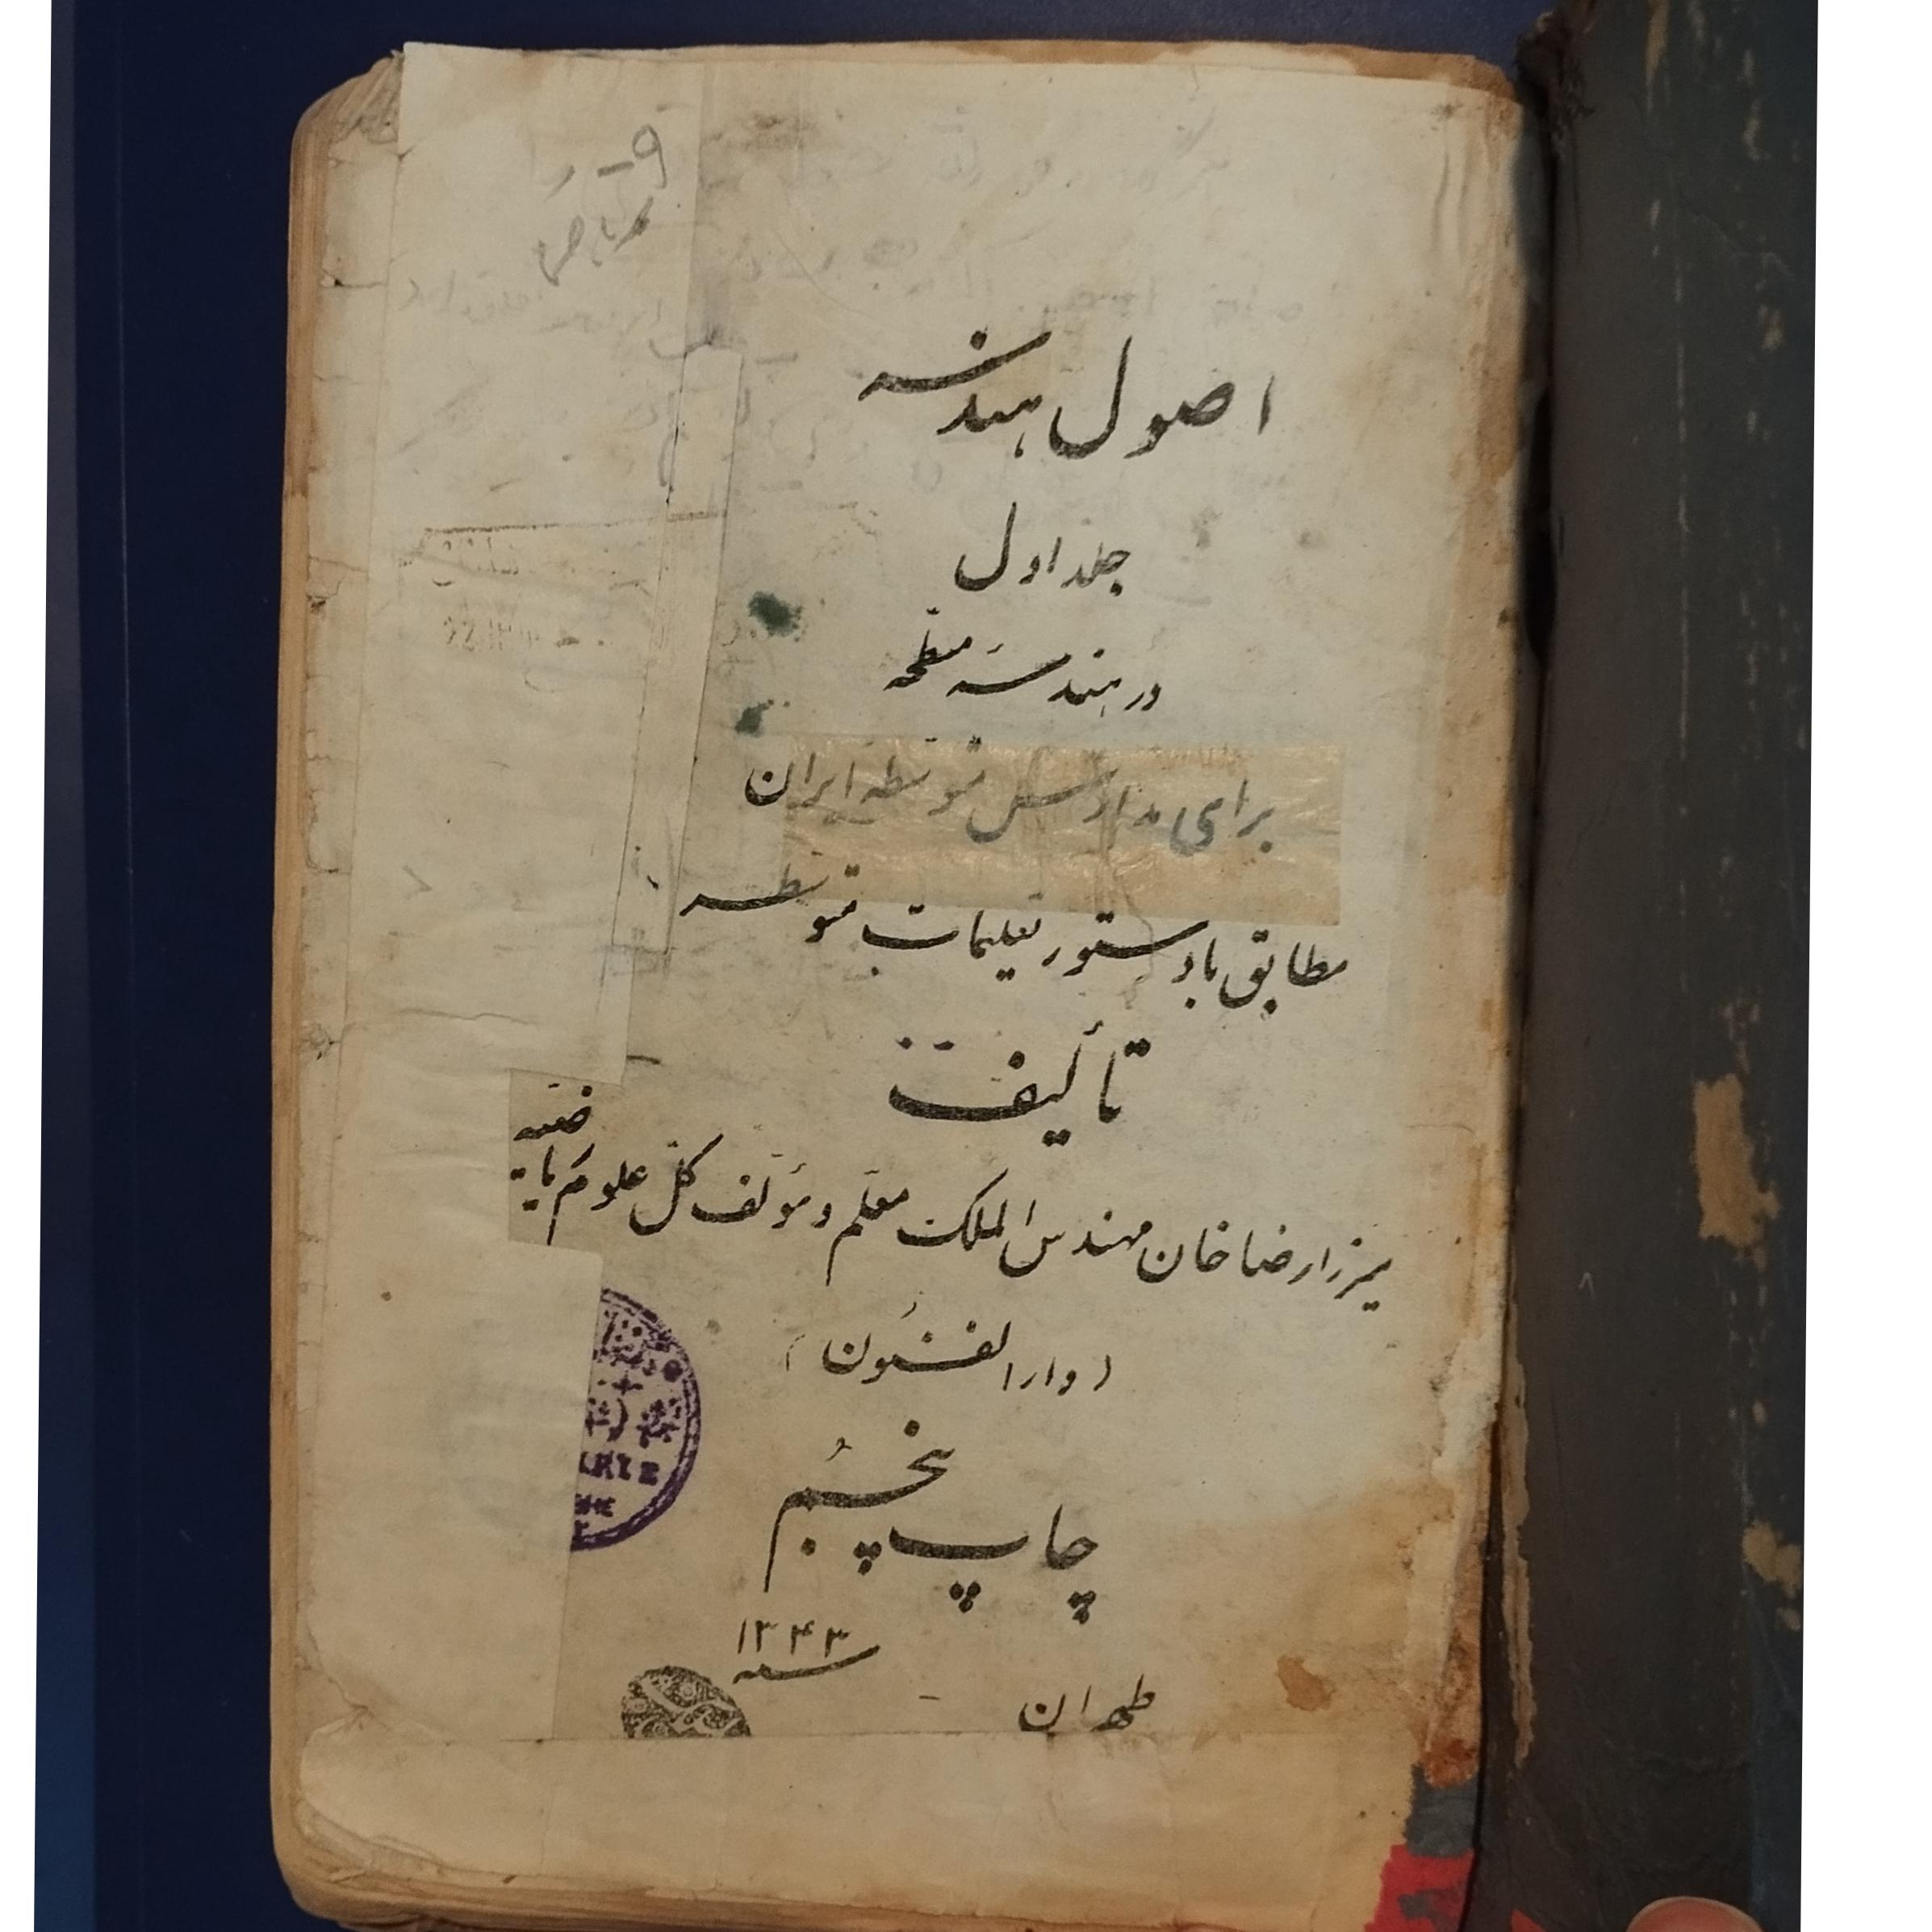 اصول هندسه
جلد اول
در هندسهٔ مسطحه
برای مدارس متوسطه ایران
مطابق با دستور تعلیمات متوسطه
تألیف
میرزا رضا خان مهندس الملک معلم و مؤلف کل علوم ریاضیه
(دارالفنون)
چاپ پنجم
سنه ۱۳۴۳
طهران